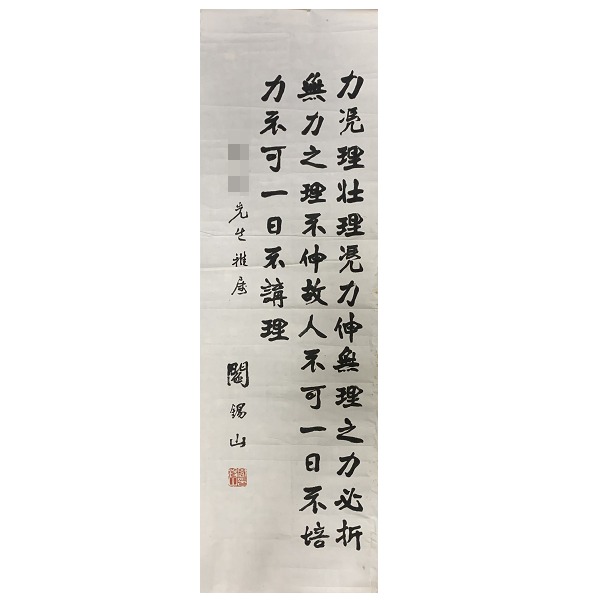 力凴理壮理凴力伸無理之力必折
無力之理不伸故人不可一日不培
力不可一日不講理
先生雅属
閻錫山